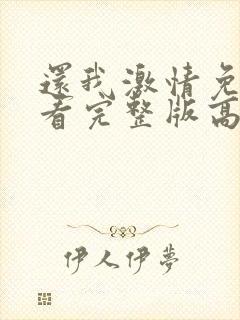 還我激情免
看完整版高
伊人伊夢